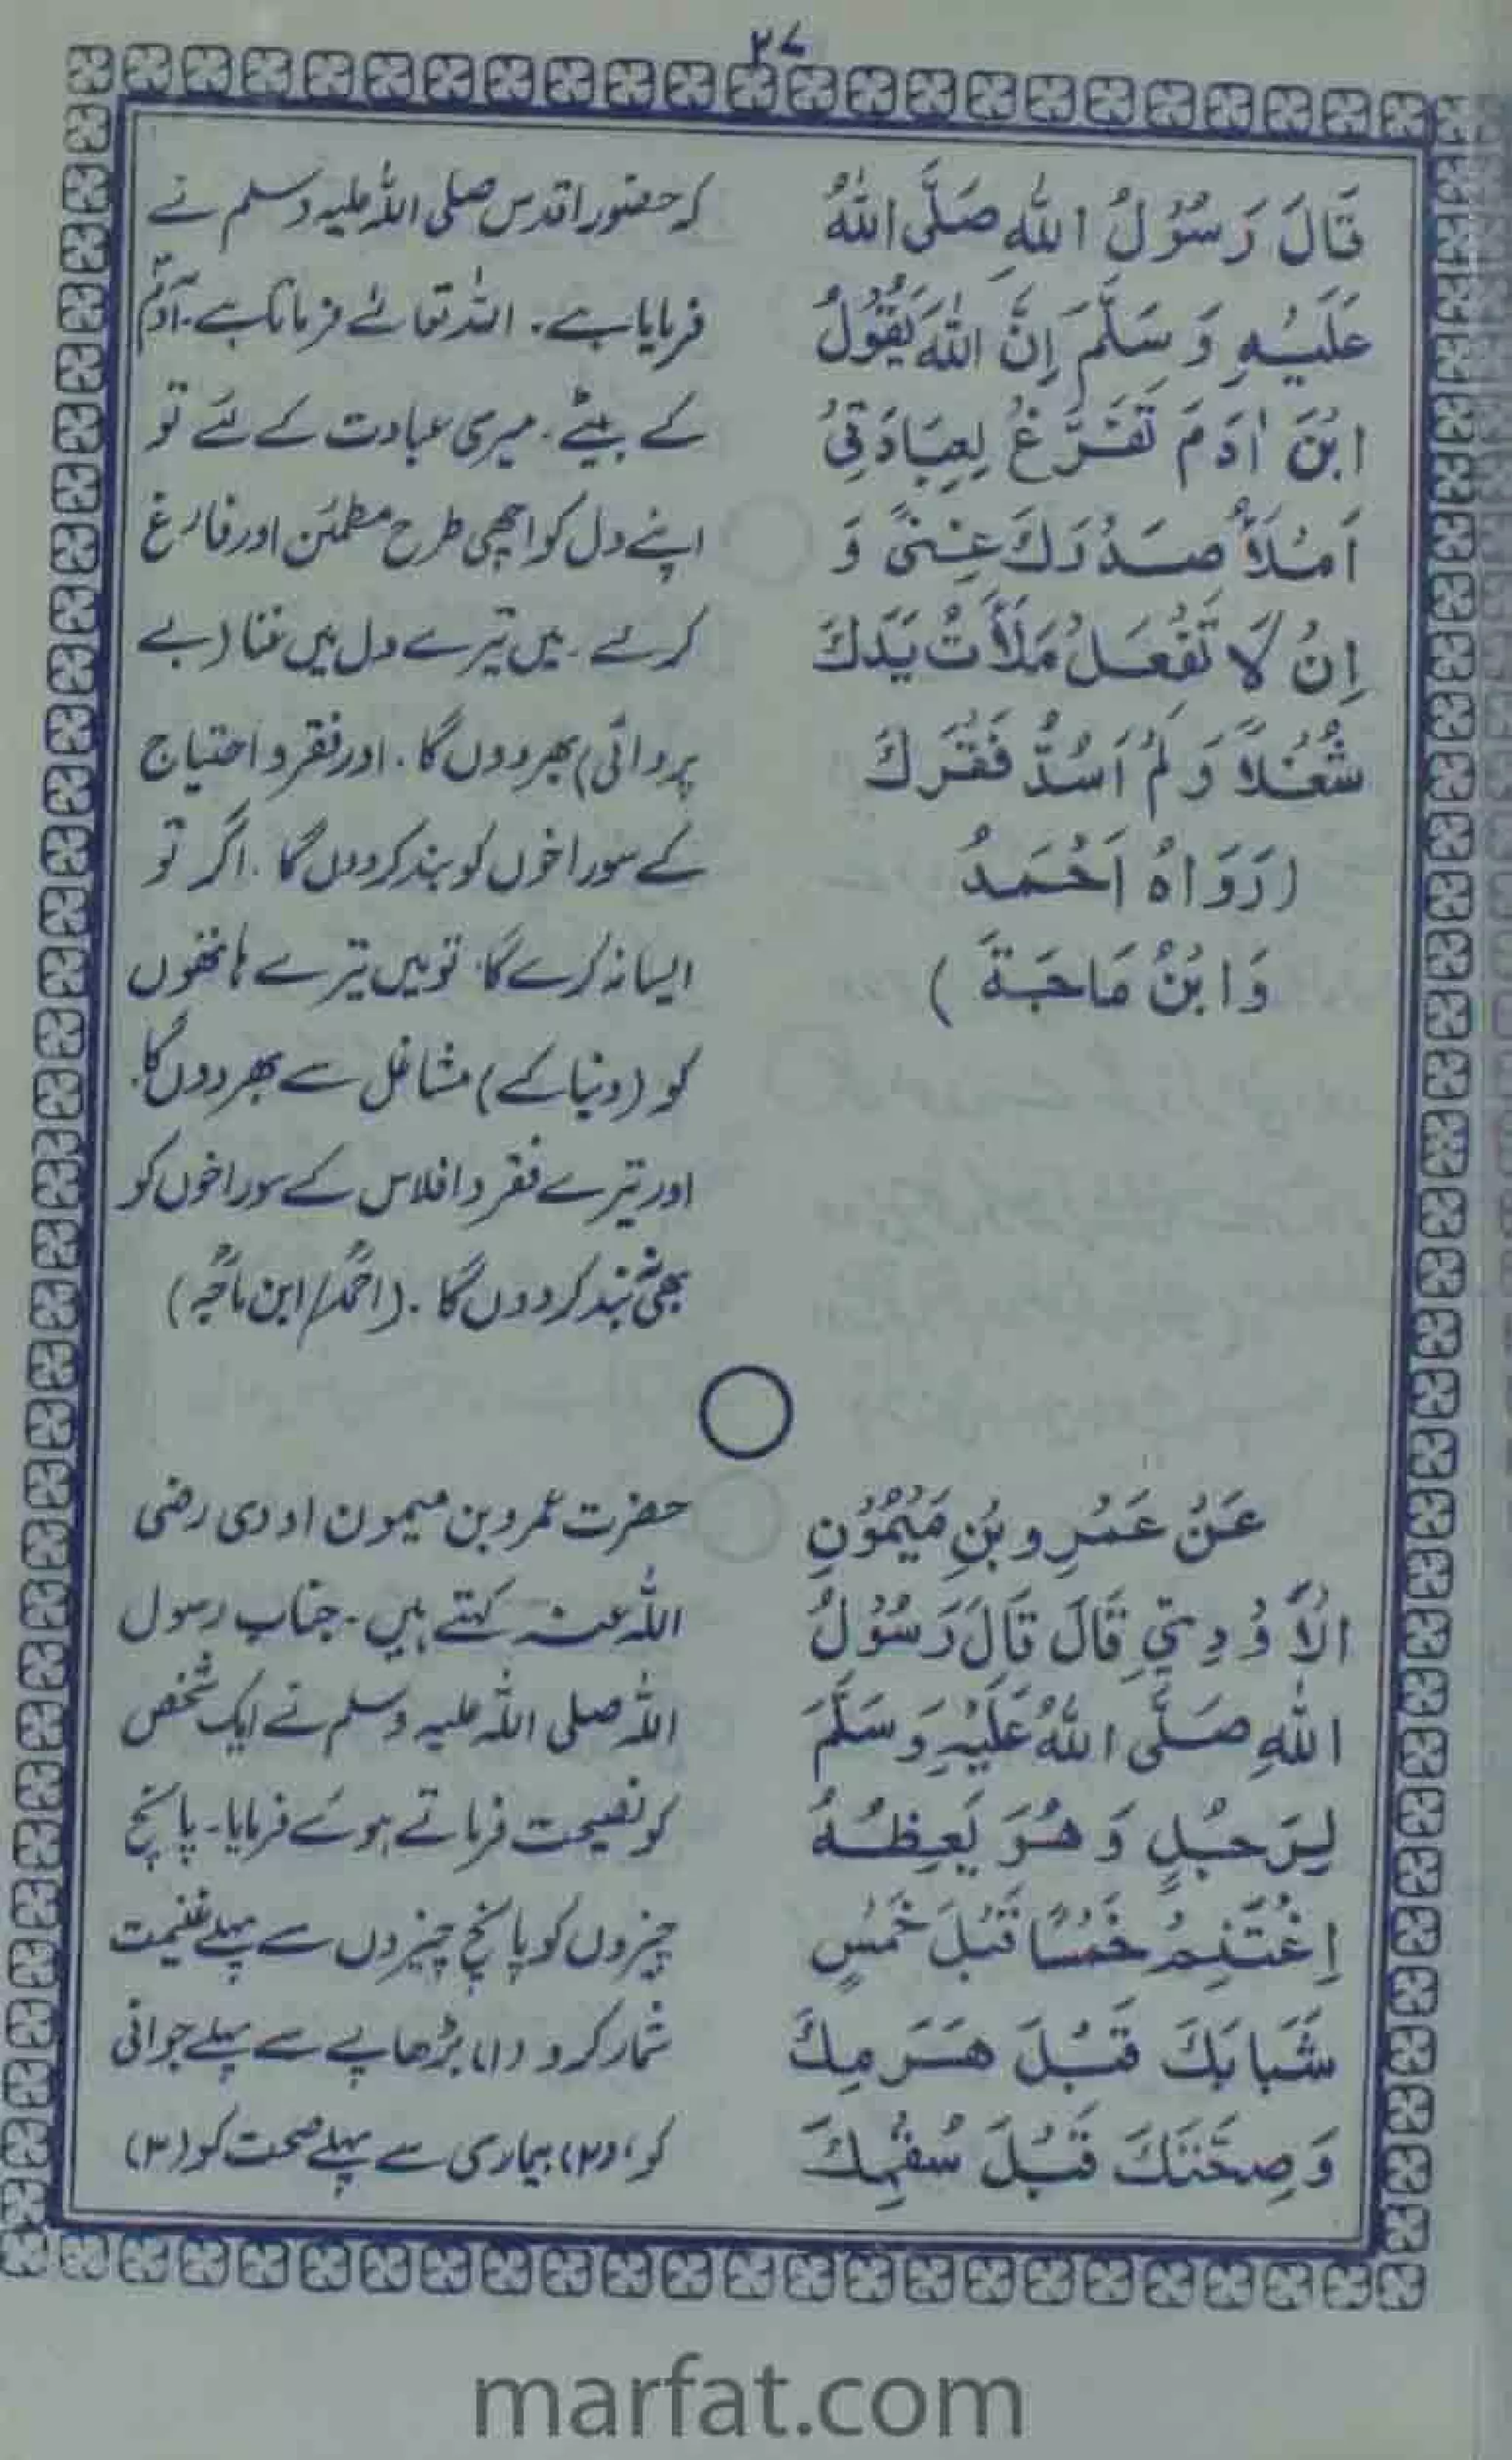 ۲۷
قَالَ رَسُوْلُ اللهِ صَلَّى اللهُ
عَلَيْهِ وَ سَلَّمَ إِنَّ اللهَ يَقُوْلُ
ابْنَ اٰدَمَ تَفَرَّغْ لِعِبَادَتِيْ
اَمْلَأْ صَدْرَكَ غِنًى وَ
اِنْ لَا تَفْعَلْ مَلَأْتُ يَدَكَ
شُغْلًا وَ لَمْ اَسُدَّ فَقْرَكَ
(رَوَاهُ اَحْمَدُ
وَابْنُ مَاجَةَ )
کہ حضور اقدس صلی اللہ علیہ وسلم نے
فرمایا ہے۔ اللہ تعالٰے فرماتا ہے۔ آدمؑ
کے بیٹے۔ میری عبادت کے لئے تو
اپنے دل کو اچھی طرح مطمئن اور فارغ
کرلے۔ میں تیرے دل میں غنا (بے
پروائی) بھر دوں گا۔ اور فقر و احتیاج
کے سوراخوں کو بند کر دوں گا۔ اگر تو
ایسا نہ کرے گا۔ تو میں تیرے ہاتھوں
کو (دنیا کے) مشاغل سے بھر دوں گا۔
اور تیرے فقر و افلاس کے سوراخوں کو
بھی نہ بند کر دوں گا۔ (احمدؒ/ابن ماجہؒ)
عَنْ عَمْرِو بْنِ مَيْمُوْنِ
الْأَوْدِيِّ قَالَ قَالَ رَسُوْلُ
اللهِ صَلَّى اللهُ عَلَيْهِ وَسَلَّمَ
لِرَجُلٍ وَ هُوَ يَعِظُهُ
اِغْتَنِمْ خَمْسًا قَبْلَ خَمْسٍ
شَبَابَكَ قَبْلَ هَرَمِكَ
وَصِحَّتَكَ قَبْلَ سُقْمِكَ
حضرت عمرو بن میمون اودی رضی
اللہ عنہ کہتے ہیں۔ جناب رسول
اللہ صلی اللہ علیہ وسلم نے ایک شخص
کو نصیحت فرماتے ہوئے فرمایا۔ پانچ
چیزوں کو پانچ چیزوں سے پہلے غنیمت
شمار کرو (۱) بڑھاپے سے پہلے جوانی
کو، (۲) بیماری سے پہلے صحت کو (۳)
marfat.com